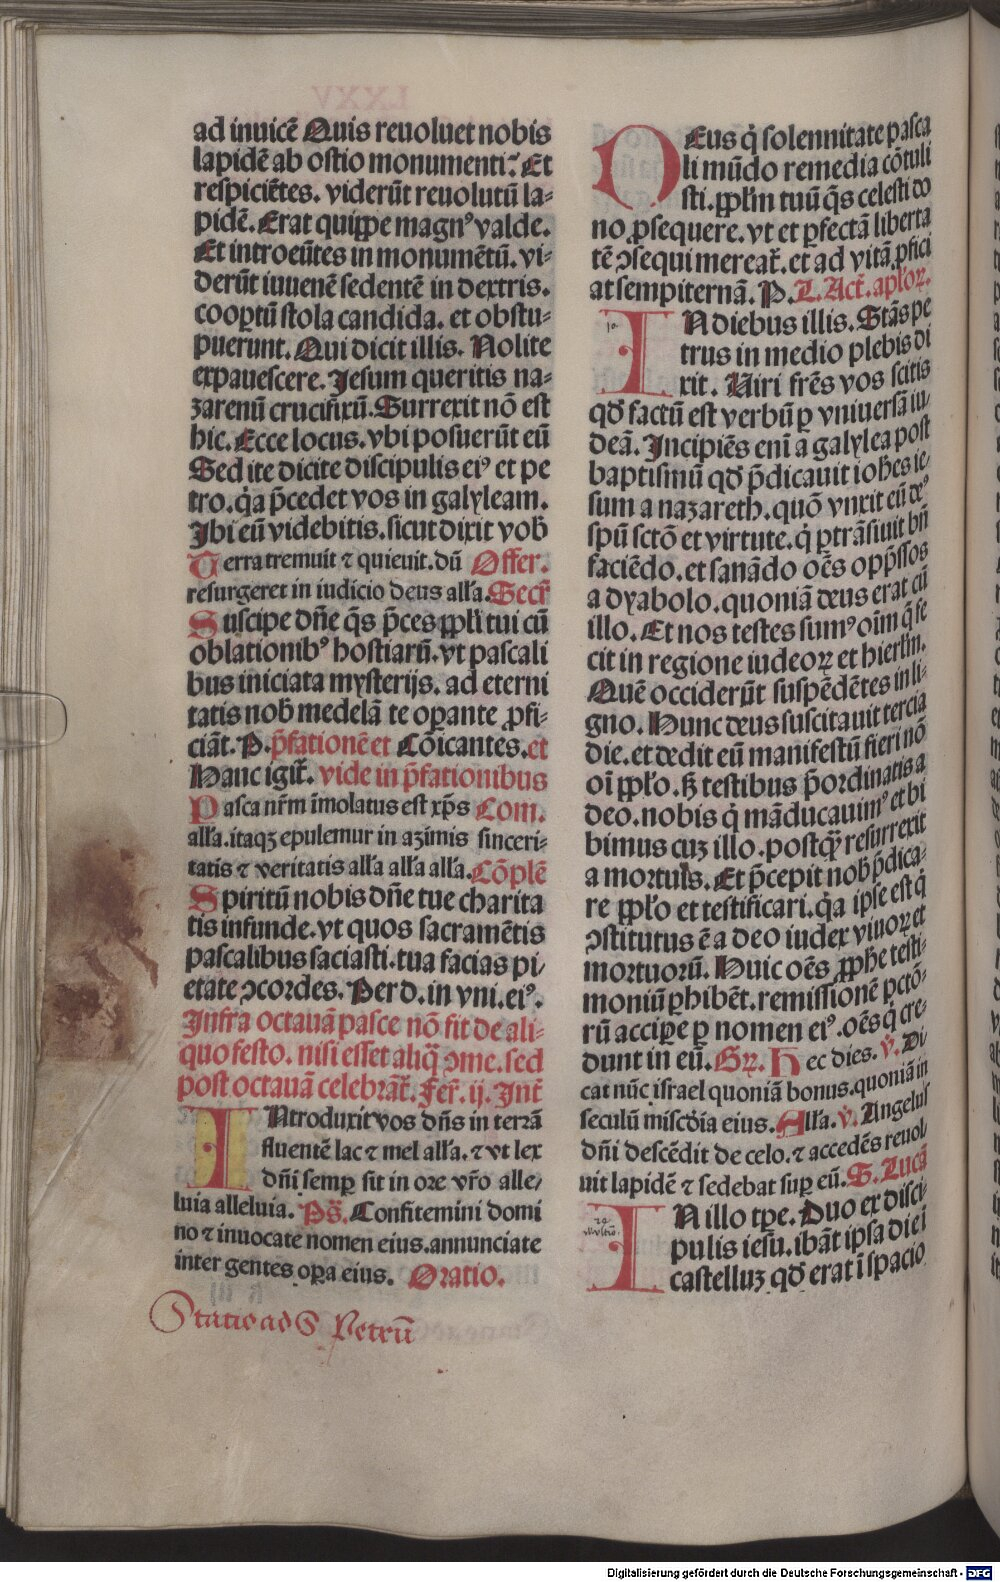 ad inuicē Quis reuoluet nobis
lapidē ab ostio monumenti? Et
respiciētes. viderūt reuolutū la-
pidē. Erat quippe magnꝰ valde.
Et introeūtes in monumētū. vi-
derūt iuuenē sedentē in dextris.
coopertū stola candida. et obstu-
puerunt. Qui dicit illis. Nolite
expauescere. Jesum queritis na-
zarenū crucifixū. Surrexit nō est
hic. Ecce locus. vbi posuerūt eū
Sed ite dicite discipulis eiꝰ et pe
tro. q̇a p̄cedet vos in galyleam.
Ibi eū videbitis. sicut dixit vob̄
Terra tremuit ⁊ quieuit. dū Offer.
resurgeret in iudicio deus all'a. Secr̄
Suscipe dn̄e q̄s p̄ces ppl'i tui cū
oblationibꝰ hostiarū. vt pascali
bus iniciata mysterijs. ad eterni
tatis nob̄ medelā te oꝑante ꝓfi-
ciāt. P. p̄fationē et Cōicantes. et
Hanc igit̄. vide in p̄fationibus
Pasca nr̄m īmolatus est xp̄s Com.
all'a. itaqꝫ epulemur in azimis sinceri-
tatis ⁊ veritatis all'a all'a all'a. Cōplē
Spiritū nobis dn̄e tue charita
tis infunde. vt quos sacramētis
pascalibus saciasti. tua facias pi-
etate ↄcordes. Per d. in vni. eiꝰ.
Infra octauā pasce nō fit de ali-
quo festo. nisi esset aliq̄ ↄme. sed
post octauā celebrāt̄. Fer̄. ij. Int̄
INtroduxit vos dn̄s in terrā
fluentē lac ⁊ mel all'a. ⁊ vt lex
dn̄i semꝑ sit in ore vr̄o alle-
luia alleluia. Ps̄. Confitemini domi
no ⁊ inuocate nomen eius. annunciate
inter gentes oꝑa eius. Oratio.
Statio ad S Petrū
DEus q̇ solennitate pasca
li mūdo remedia cōtuli
sti. ppl'm tuū q̄s celesti do
no ꝓsequere. vt et ꝑfectā liberta
tē ↄsequi mereat̄. et ad vitā ꝓfici
at sempiternā. P. L. Act̄. apl'oꝝ.
IN diebus illis. Stās pe
trus in medio plebis di
xit. Viri fr̄es vos scitis
qd̄ factū est verbū ꝑ vniuersā iu-
deā. Incipiēs eni a galylea post
baptismū qd̄ p̄dicauit ioh̄es ie-
sum a nazareth. quō vnxit eū deꝰ
spū sctō et virtute. q̇ ꝑtrāsiuit bn̄
faciēdo. et sanādo oēs opp̄ssos
a dyabolo. quoniā deus erat cū
illo. Et nos testes sumꝰ oīm q̄ fe
cit in regione iudeoꝝ et hierl'm.
Quē occiderūt suspēdētes in li-
gno. Hunc deus suscitauit tercia
die. et dedit eū manifestū fieri nō
oī ppl'o. sꝫ testibus p̄ordinatis a
deo. nobis q̇ māducauimꝰ et bi
bimus cuꝫ illo. postq̄ꝫ resurrexit
a mortuis. Et p̄cepit nob̄ p̄dica-
re ppl'o et testificari. q̇a ipse est q̇
ↄstitutus ē a deo iudex viuoꝝ et
mortuorū. Huic oēs ꝓph̄e testi-
moniū ꝑhibēt. remissionē pctō-
rū accipe ꝑ nomen eiꝰ. oēs q̇ cre-
dunt in eū. Gr̄. Hec dies. V̄. Di
cat nūc israel quoniā bonus. quoniā in
seculū miscd̄ia eius. All'a. V̄. Angelus
dn̄i descēdit de celo. ⁊ accedēs reuol-
uit lapidē ⁊ sedebat suꝑ eū. S. Lucā
IN illo tꝑe. Duo ex disci-
pulis iesu. ibāt ipsa die ī
castelluꝫ qd̄ erat ī spacio
Digitalisierung gefördert durch die Deutsche Forschungsgemeinschaft - DFG